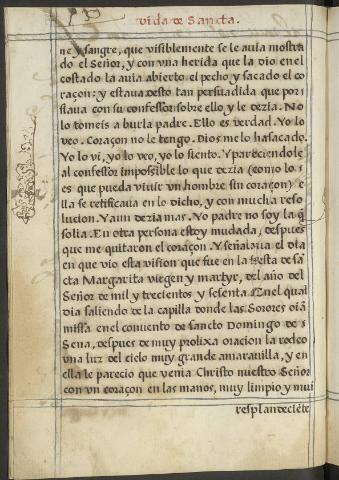 Vida de Sancta.
ne y sangre, que visiblemente se le auia mostra
do el Señor, y con vna herida que la dio en el
costado la auia abierto el pecho y sacado el co
raçon: y estaua desto tan persuadida que porf
staua con su confessor sobre ello y le dezia. No
lo tomeis a burla padre. Ello es verdad. Yo lo
veo. Coraçon no le tengo. Dios me lo ha sacado.
Yo lo vi, yo lo veo, yo lo siento. Y pareciendole
al confessor impossible lo que dezia (como lo
es que pueda viuir vn hombre sin coraçon) e
lla se retificaua en lo dicho, y con mucha reso
lucion. Y aun dezia mas. Yo padre no soy la q̃
solia. En otra persona estoy mudada, despues
que me quitaron el coraçon. Y señalaua el dia
en que vio esta vision que fue en la fiesta de sã
cta Margarita virgen y martyr, del año del
Señor de mil y trecientos y setenta. En el qual
dia saliendo de la capilla donde las Sorores oiã
missa en el conuento de sancto Domingo de S
Sena, despues de muy prolixa oracion la rodeo
vna luz del cielo muy grande a marauilla, y en
ella le parecio que venia Christo nuestro Señor
con vn coraçon en las manos, muy limpio y mui
resplandeciẽte